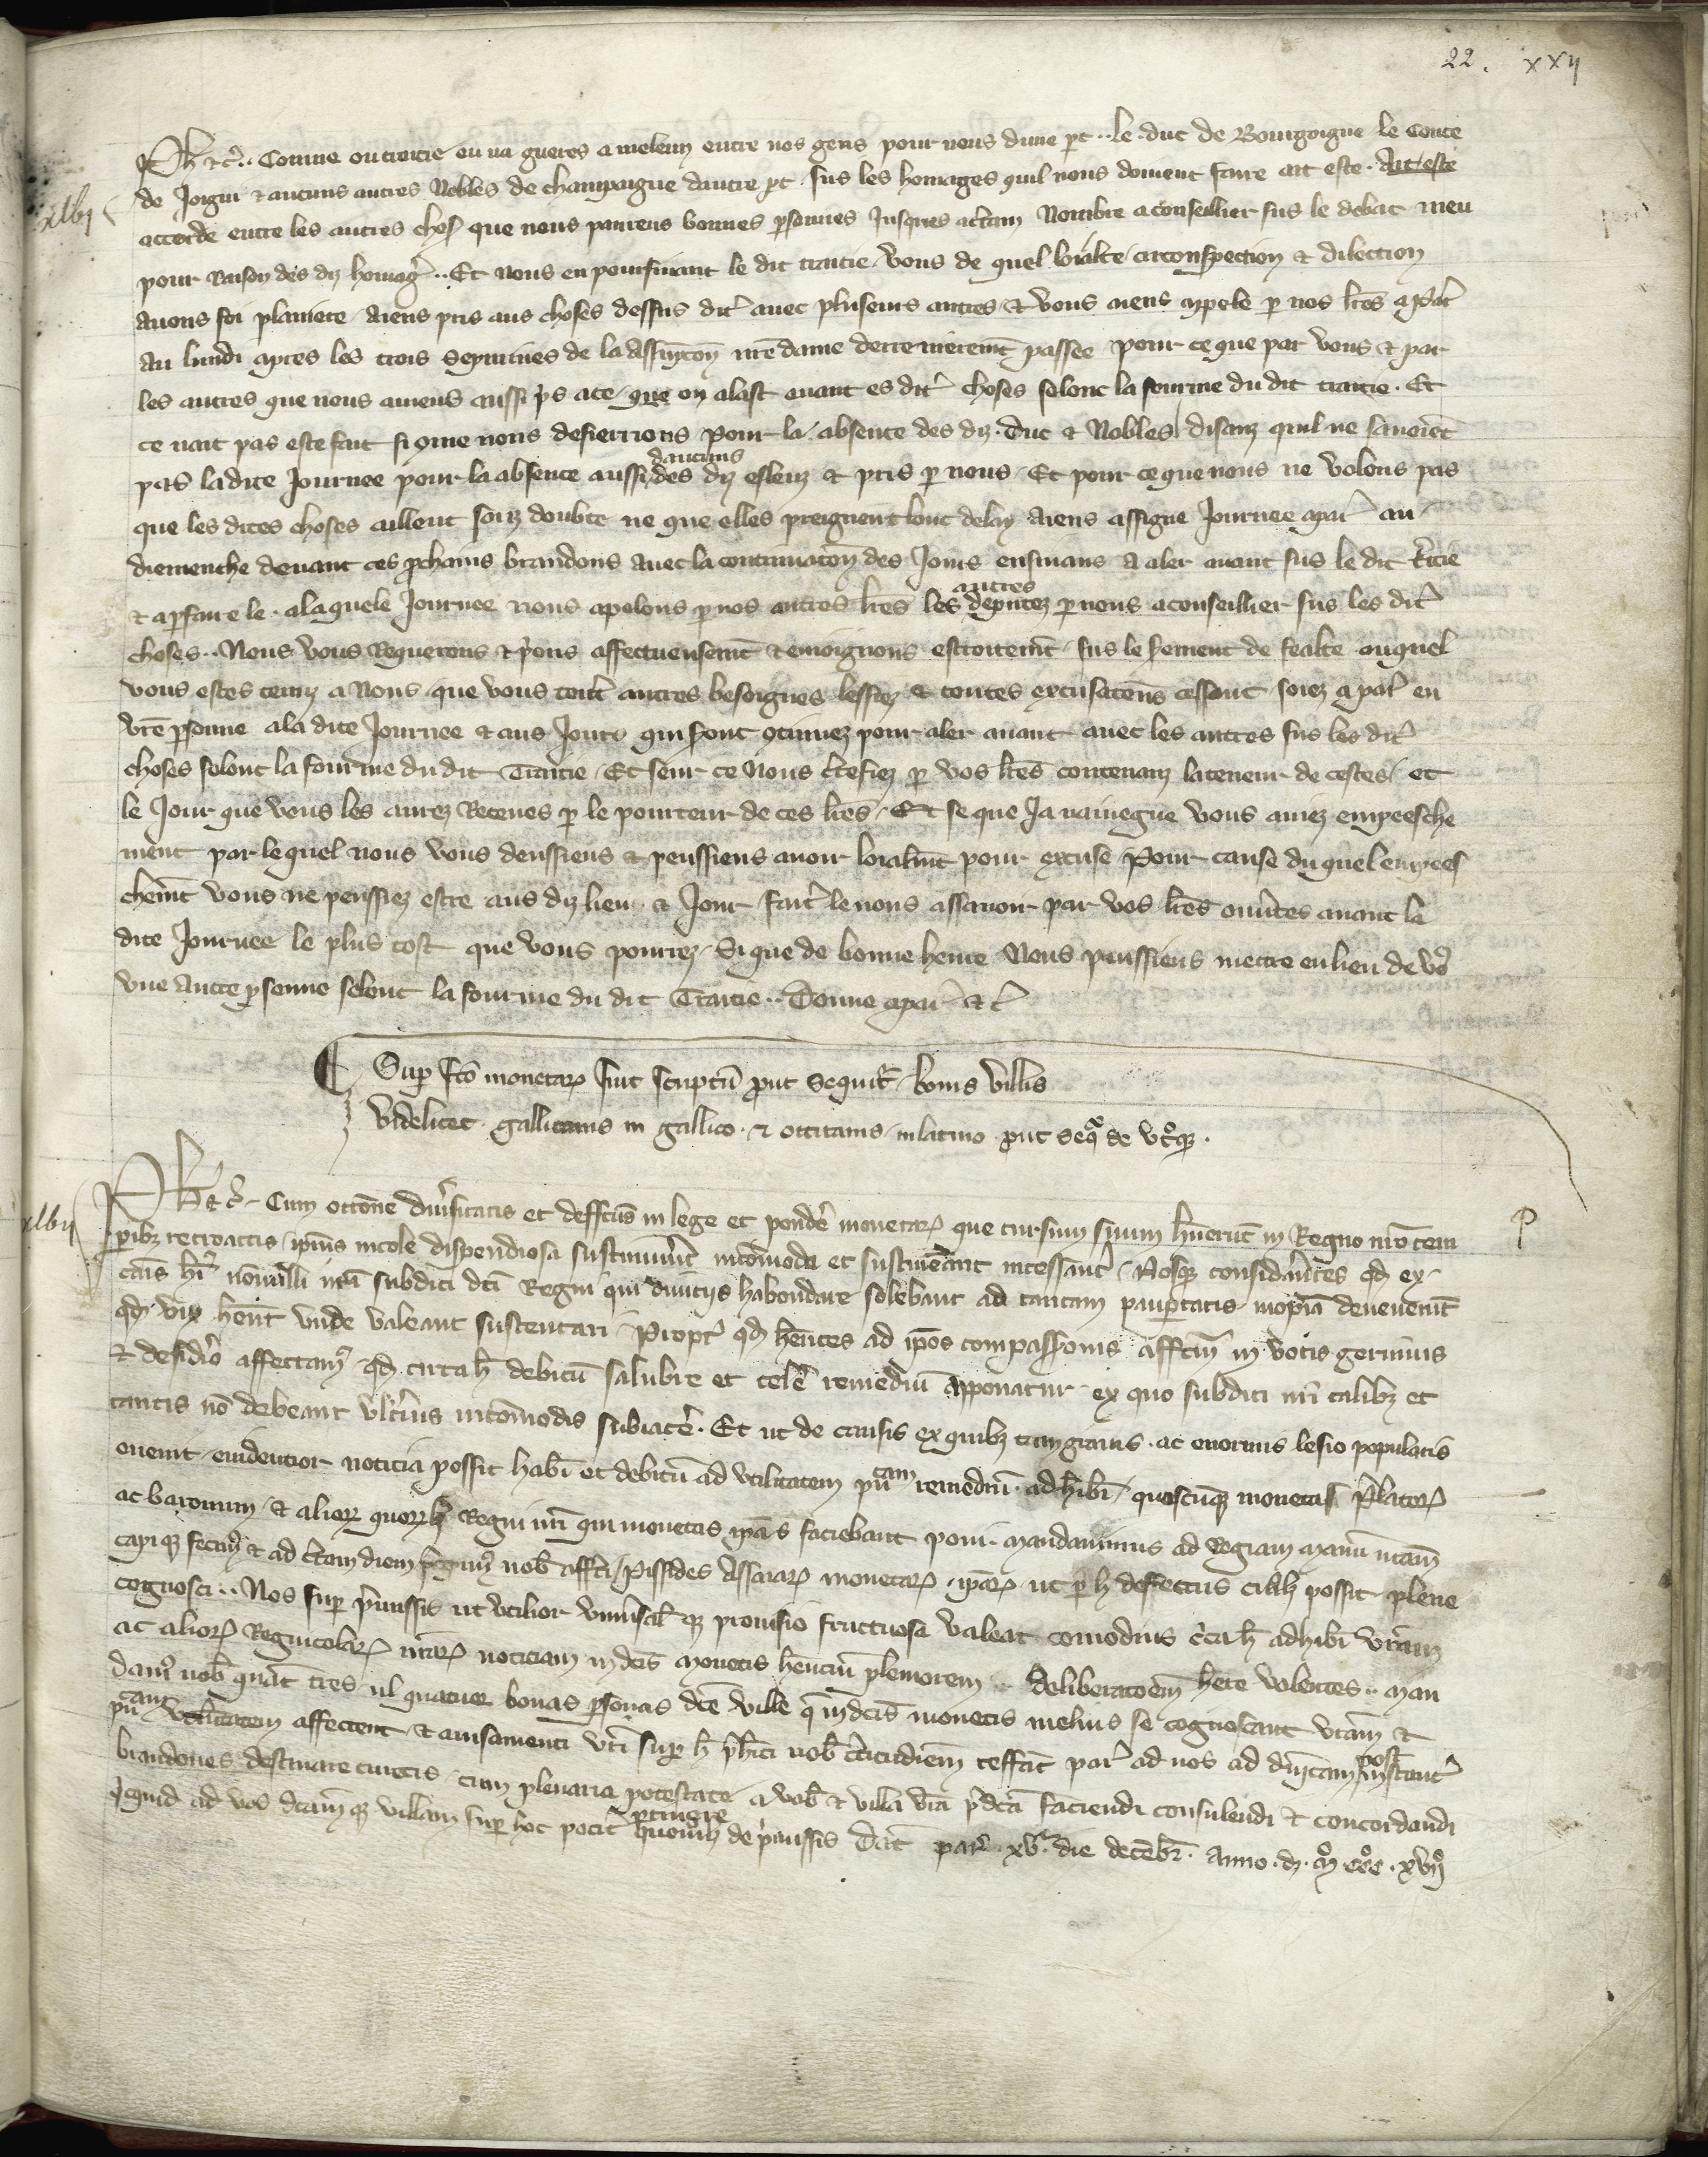 22. xxij
Ph̅ etc̃. Comme ou traitie eu na gueres a meleun entre nos gens pour nous dune p̱t .. le duc de Bourgoigne le Conte
de Joigni et aucuns autres Nobles de champaigne dautre p̱t sus les homages quil nous doivent faire ait este. Ait este
xlvj
accorde entre les autres chos̃ que nous panrens bonnes p̱sonnes Jusques a c̃tain Nombre a conseillier sus le debat meu
pour Raison des diz homag̃ .. Et nous en poursuiant le dit traitie vous de quel loialte circonspection et dilection
avons foi planiere aiens pris aus choses dessus dit̃ avec pluseurs autres et vous aiens apele p̱ nos lr̃es a par̃
au lundi apres les trois sepmaines de la Assumpcõn nr̃e dame derrenierem̃t passee pour ce que par vous et par
les autres que nous aviens aussi p̃s a ce que on alast avant es dit̃ choses selonc la fourme du dit traitie. Et
ce nait pas este fait si ome nous desierrions pour la absence des diz duc et Nobles disanz quil ne savoiẽt
daucuns
pas ladite Journee pour la absence aussi des diz esleuz et pris p̱ nous Et pour ce que nous ne volons pas
que les dites choses aillent soiz doubte ne que elles preignent lonc delay aiens assigne Journee a par̃ au
diemenche devant ces p̱chains brandons avec la continuacõn des Jours ensivans a aler avant sus le dit t̃tie
autres
et a p̱faire le. a laquele Journee nous apelons p̱ nos autres lr̃es les deputez p̱ nous a conseillier sus les dit̃
choses.. Nous vous Requerons et p̃ons affectueusem̃t et enioignons estroitem̃t sus le serement de fealte auquel
vous estes tenuz a Nous que vous tout̃ autres besoignes lessiez et toutes excusacõns cessanz soiez a par̃ en
vr̃e p̱sonne a la dite Journee et aus Jours qui sont 9tinuez pour aler avant avec les autres sus les dit̃
choses selonc la fourme du dit Traitie. Et seur ce Nous c̃tefiez p̱ vos lr̃es contenanz la teneur de cestes et
le Jour que vous les aurez Receues p̱ le porteur de ces lr̃es. Et se que Ja navieigne vous aviez empeesche
ment par le quel nous vous deussiens et peussiens avoir loialm̃t pour excuse Pour cause du quel empees
chem̃t vous ne peussiez estre aus diz lieu et Jour fait̃ le nous assavoir par vos lr̃es ouṽtes avant la
dite Journee le plus tost que vous pourrez. Si que de bonne heure Nous puissiens mectre en lieu de v̊
une autre p̱sonne selonc la fourme du dit Traitie.. Donne a par̃ etc̃
Sup̱ fc̃o monetarꝫ fuit scriptũ prout sequit̃ bonis villis
videlicet. gallicanis in gallico. et occitanis in latino prout seqr̃ de utroqꝫ.
xlvij
Ph̅ etc̃. Cum occõne diṽsitatis et deffc̃us in lege et pondẽ monetarꝫ que cursum suum hũerũt in Regno nr̃o tem
p̱ibꝫ retroactis ip̃ius incole dispendiosa sustinuer̃t incõmoda et sustineãnt incessãnt̃. Nosqꝫ considãntes qđ ex
caũs hĩ nõnulli nr̃i subditi dc̃i Regni qui divitijs habondare solebant ad tantam paup̱tatis inopiã devenerũt
qđ vix hẽnt unde valeant sustentari. Propt̃ qđ hẽntes ad ip̃os compassionis affcũm in votis gerimus
et desid̃io affectam̃ qđ circa h̃ debitũ salubre et celẽ remediũ apponatur. ex quo subditi nr̃i talibꝫ et
tantis nõ debeant ult̃ius incõmodis subiacẽ. Et ut de causis ex quibꝫ tam gravis. ac enormis lesio populatis
evenit. evidentior noticia possit habĩ et debitũ ad utilitatem pũcam remediũ. adhibĩ. quascũqꝫ monetas P̃latorꝫ
ac baronum. et aliorꝫ quorꝫlꝫ Regni nr̃i qui monetas ip̃as faciebant poni mandavimus ad Regiam manũ nr̃am
capiqꝫ fecim̃ et ad c̃tam diem p̃cepim̃ nob̃ afferri Pissides assaiarꝫ monetarꝫ. ip̃arꝫ. ut p̱ h̃ deffectus cuilꝫ possit plene
cognosci.. Nos sup̱ p̃missis ut utilior uniṽsal̃qꝫ provisio fructuosa valeat comodius c̃ca h̃ adhibĩ vr̃am
ac aliorꝫ Regnicolarꝫ nr̃arꝫ noticiam in dc̃is monetis hẽnciũ pleniorem deliberacõem hẽre volentes.. man
dam̃ vob̃ quat̃ tres ul̃ quatuor bonas p̱sonas dc̃e ville q̃ in dc̃is monetis melius se cognoscant vr̃am et
pũcam utilitatem affectent et avisamenti vr̃i sup̱ h̃ p̃hĩti nob̃ c̃titudiem reffar̃t par̃ ad nos ad dñicam post instant̃
brandones destinare curetis. cum plenaria potestate a vob̃ et villa vr̃a p̃dc̃a faciendi consulendi et concordandi
ptingre
quid ad vos dc̃amqꝫ villam sup̱ hoc potit̃ quomolꝫ de p̃missis Dat̃ par̃. xv.ᵃ die decẽbr̃. Anno. dⁱ. M̊. ccc̊. xvij̊